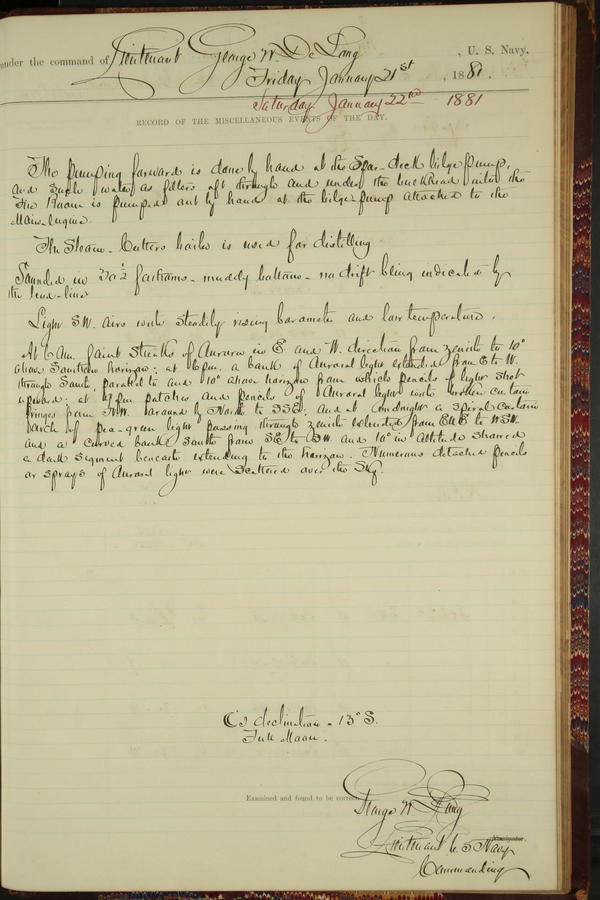 under the command of Lieutenant George W. De Long, U. S. Navy,
Friday January 21st, 1881.
Saturday January 22nd 1881
RECORD OF THE MISCELLANEOUS EVENTS OF THE DAY.
The pumping forward is done by hand at the Spar-deck bilge pump,
and such water as filters aft through and under the bulkhead into the
Fire Room is pumped out by hand at the bilge pump attached to the
Main Engine.
The Steam-Cutters boiler is used for distilling
Sounded in 30 1/2 fathoms - muddy bottom - no drift being indicated by
the lead-line
Light SW. airs with steadily rising barometer and low temperature.
At 6 Am. faint streaks of Aurora in E and W. direction from zenith to 10°
above Southern horizon; at 6 pm. a bank of Auroral light extended from E to W.
through South, parallel to and 10° above horizon from which pencils of light shot
upward; at 9 pm patches and pencils of Auroral light with broken curtain
fringes from NW. around by North to SSE; and at midnight a spiral curtain
arch of pea-green light passing through zenith extended from ENE to WSW
and a curved bank South from SE to SW and 10° in altitude showed
a dark segment beneath extending to the horizon. Numerous detached pencils
or sprays of Auroral light were scattered over the Sky.
declination - 13° S.
Full Moon.
Examined and found to be correct.
George W. De Long
Lieutenant U. S Navy
Navigator.
Commanding